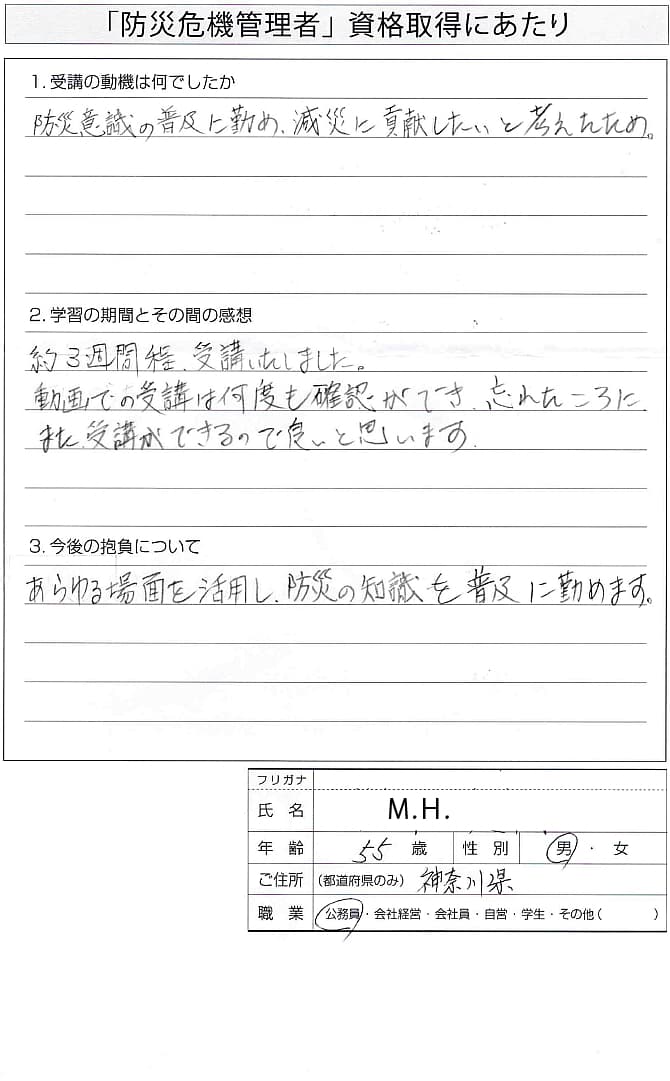 「防災危機管理者」資格取得にあたり
1. 受講の動機は何でしたか
防災意識の普及に勤め、減災に貢献したいと考えたため。
2. 学習の期間とその間の感想
約3週間程、受講いたしました。
動画での受講は何度も確認ができ、忘れたころに、
また、受講ができるので良いと思います。
3. 今後の抱負について
あらゆる場面を活用し、防災の知識を普及に勤めます。
フリガナ
氏 名 M.H.
年 齢 55 歳 性 別 男 ・ 女
ご住所 (都道府県のみ) 神奈川県
職 業 公務員・会社経営・会社員・自営・学生・その他( )